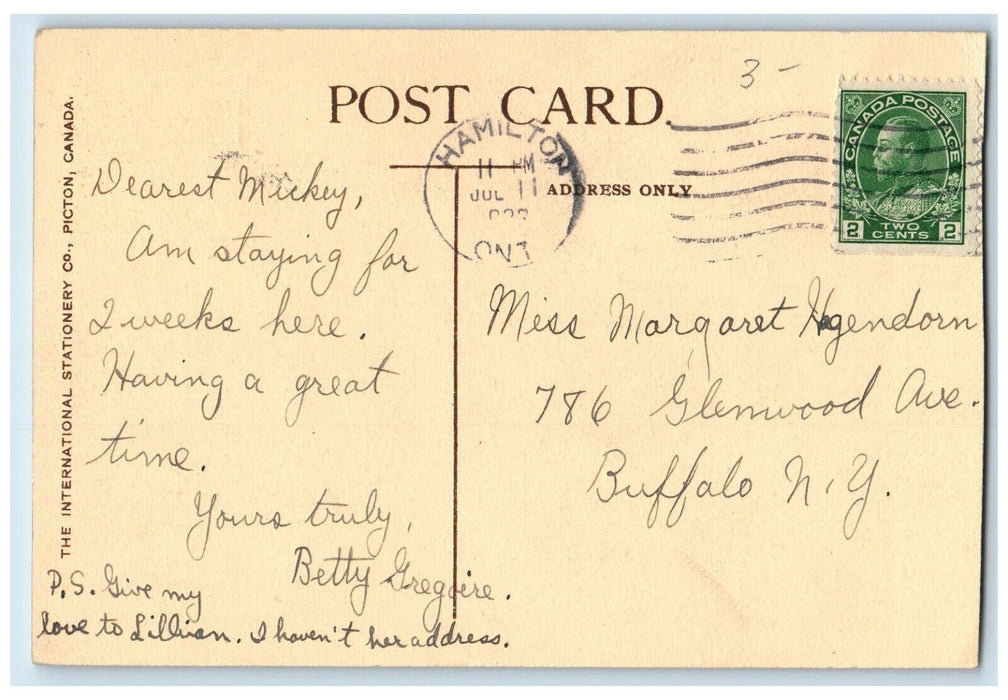 3-
POST CARD.
CANADA POSTAGE
2 TWO CENTS 2
HAMILTON
11 PM
JUL 11
ONT
ADDRESS ONLY
THE INTERNATIONAL STATIONERY Co., PICTON, CANADA.
Dearest Mickey,
Am staying for
2 weeks here.
Having a great
time.
Yours truly,
Betty Gregoire.
P.S. Give my
love to Lillian. I haven't her address.
Miss Margaret Hagendorn
786 Glenwood Ave.
Buffalo N.Y.